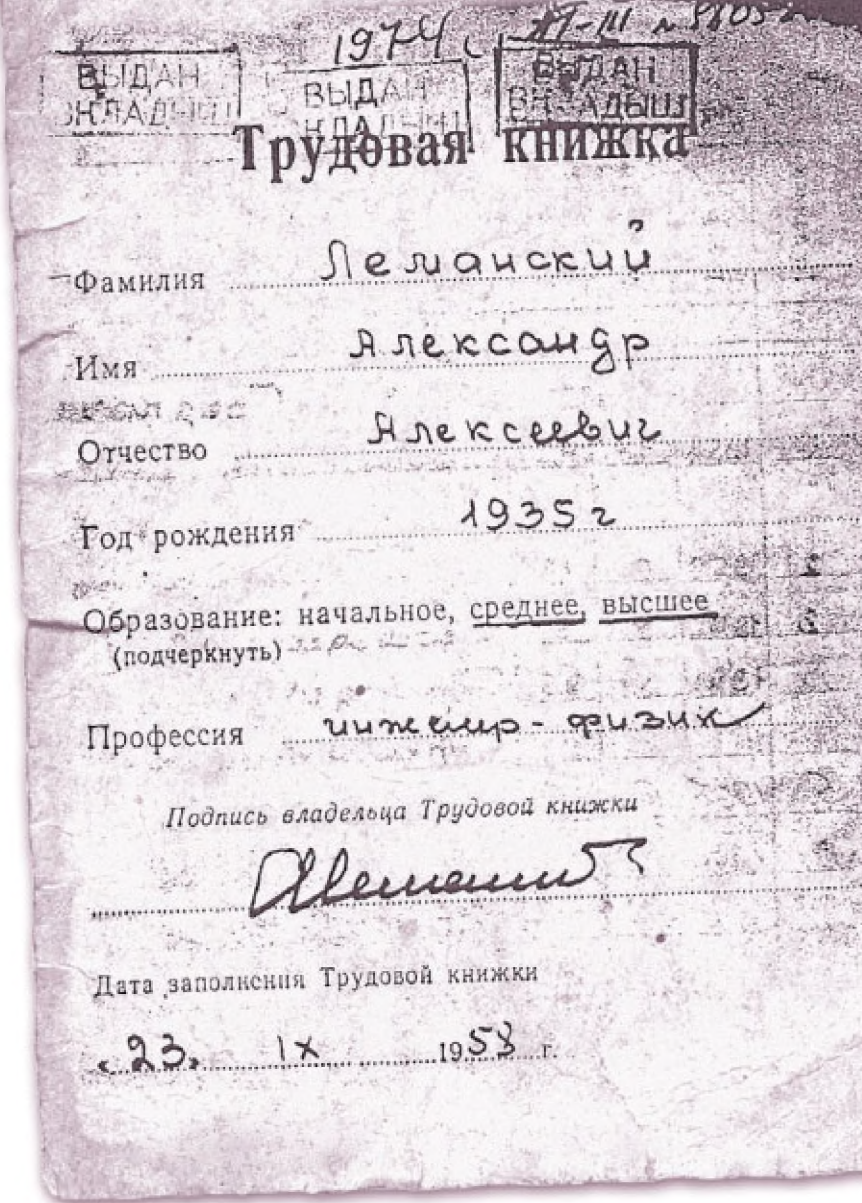 1974 г. АТ-III №
ВЫДАН ВКЛАДЫШ
ВЫДАН ВКЛАДЫШ
ВЫДАН ВКЛАДЫШ
Трудовая книжка
Фамилия Леманский
Имя Александр
Отчество Алексеевич
Год рождения 1935 г
Образование: начальное, среднее, высшее
(подчеркнуть)
Профессия инженер - физик
Подпись владельца Трудовой книжки
Дата заполнения Трудовой книжки
„23„ IX 1958 г.